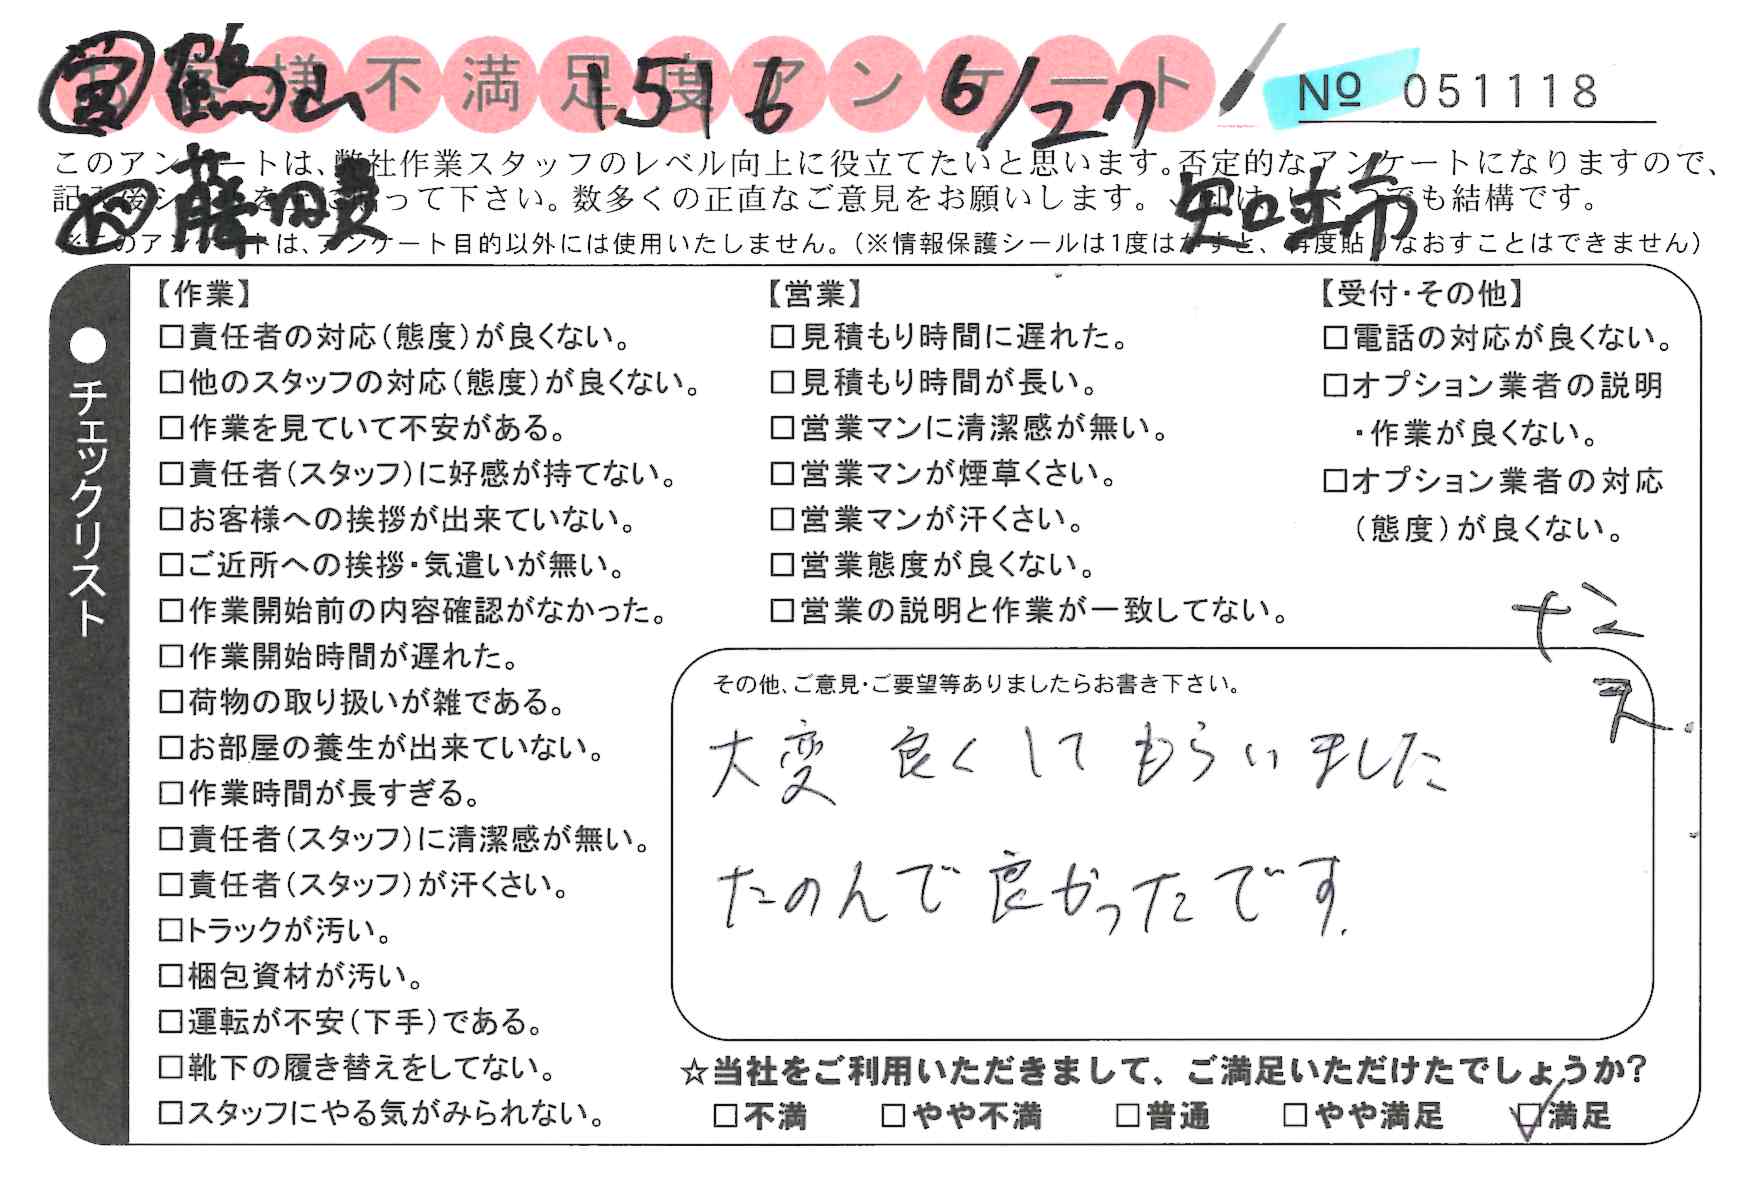 お客様不満足度アンケート
営 鶴山 1516 6/27
№ 051118
このアンケートは、弊社作業スタッフのレベル向上に役立てたいと思います。否定的なアンケートになりますので、
って下さい。数多くの正直なご意見をお願いします。 でも結構です。
知立市
※このアンケートは、アンケート目的以外には使用いたしません。(※情報保護シールは1度はがすと、再度貼りなおすことはできません)
●チェックリスト
【作業】
□責任者の対応(態度)が良くない。
□他のスタッフの対応(態度)が良くない。
□作業を見ていて不安がある。
□責任者(スタッフ)に好感が持てない。
□お客様への挨拶が出来ていない。
□ご近所への挨拶・気遣いが無い。
□作業開始前の内容確認がなかった。
□作業開始時間が遅れた。
□荷物の取り扱いが雑である。
□お部屋の養生が出来ていない。
□作業時間が長すぎる。
□責任者(スタッフ)に清潔感が無い。
□責任者(スタッフ)が汗くさい。
□トラックが汚い。
□梱包資材が汚い。
□運転が不安(下手)である。
□靴下の履き替えをしてない。
□スタッフにやる気がみられない。
【営業】
□見積もり時間に遅れた。
□見積もり時間が長い。
□営業マンに清潔感が無い。
□営業マンが煙草くさい。
□営業マンが汗くさい。
□営業態度が良くない。
□営業の説明と作業が一致してない。
【受付・その他】
□電話の対応が良くない。
□オプション業者の説明
・作業が良くない。
□オプション業者の対応
(態度)が良くない。
その他、ご意見・ご要望等ありましたらお書き下さい。
大変 良くしてもらいました
たのんで良かったです.
☆当社をご利用いただきまして、ご満足いただけたでしょうか?
□不満 □やや不満 □普通 □やや満足 □満足